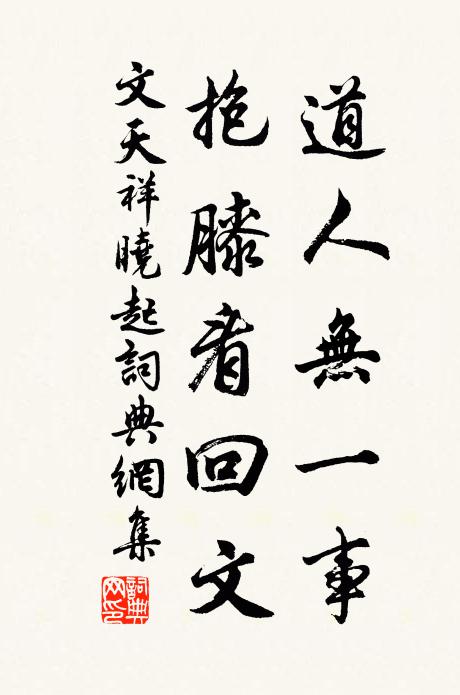 道人無一事
抱膝看回文
文天祥曉起詞典網集
詞典網印